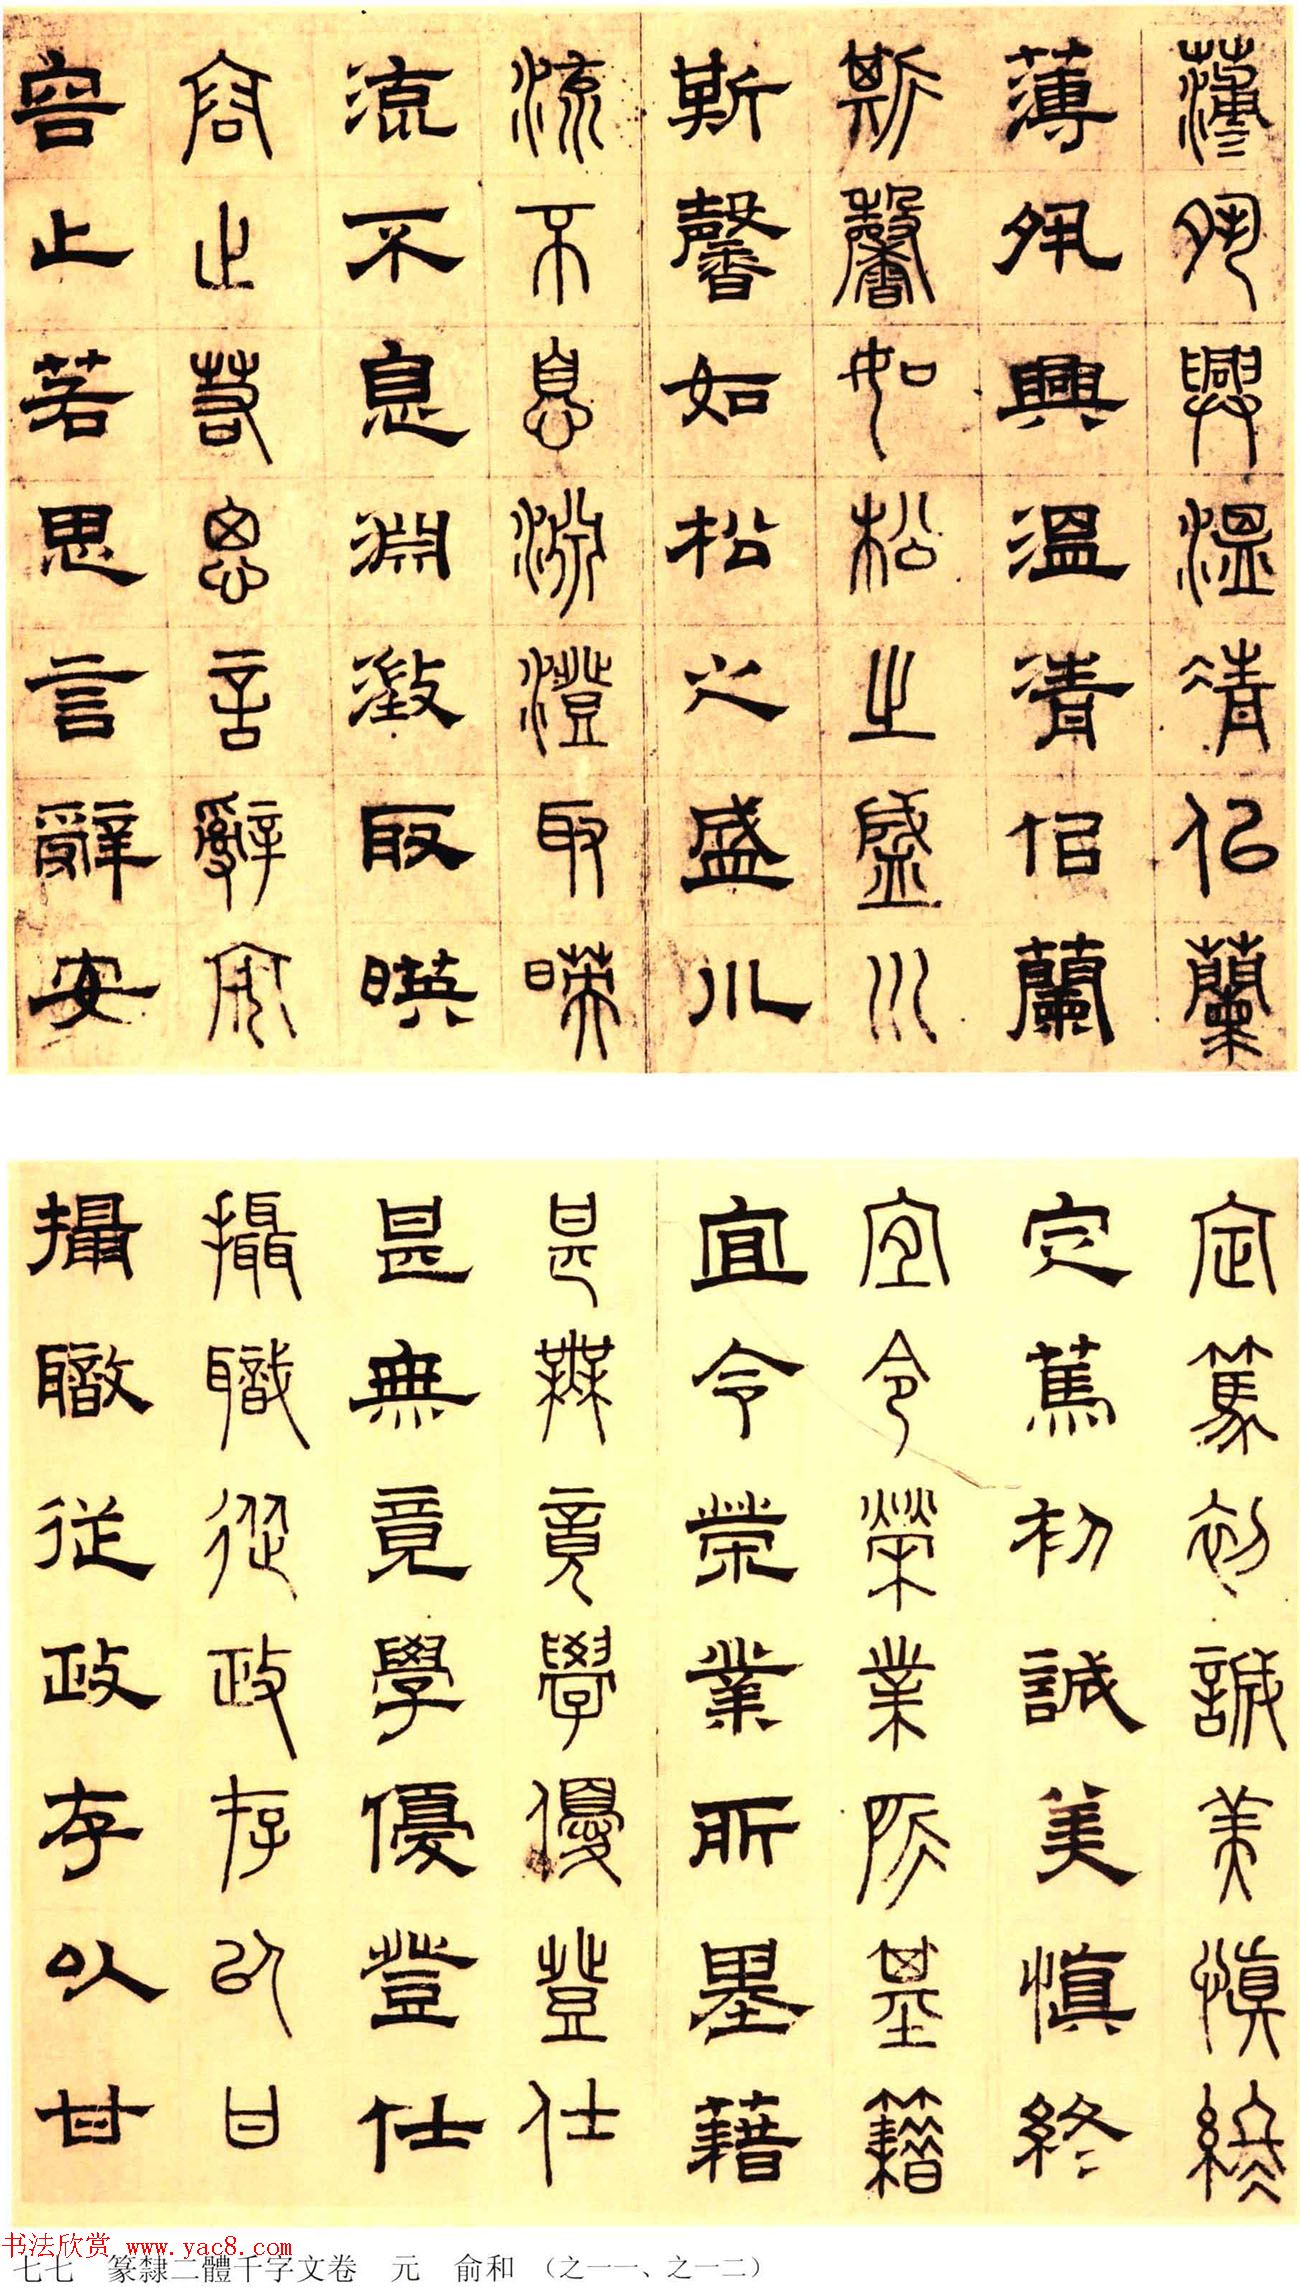 薄夙興溫凊佀蘭
薄夙興溫清佀蘭
斯馨如松之盛川
斯馨如松之盛川
流不息淵澄取暎
流不息淵澂取暎
容止若思言辭安
容止若思言辭安
定篤初誠美慎終
定蔫初誠美慎終
宜令榮業所基籍
宜令榮業所墨藉
甚無竟學優登仕
甚無竟學優登仕
攝職從政存㠯甘
攝職従政存以甘
书法欣赏 www.yac8.com
七七 篆隸二體千字文卷 元 俞和 (之一一、之一二)